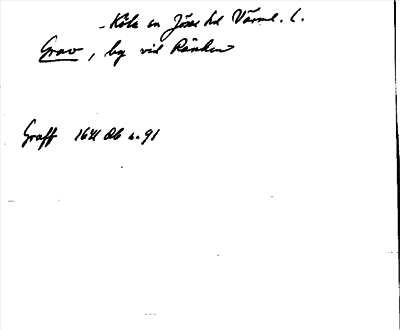 Köla sn Jösse hd Värml. l.
Grav, by vid Ränken
Graff 1641 Ob s. 91